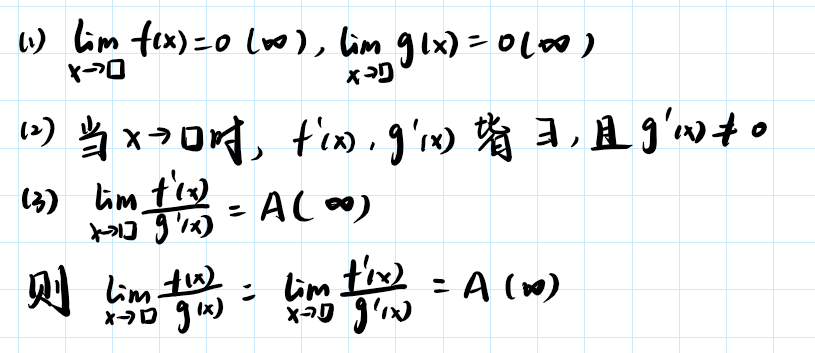 (1) lim_{x→□} f(x)=0 (∞), lim_{x→□} g(x)=0(∞)
(2) 当 x→□时, f'(x), g'(x) 皆 ∃, 且 g'(x)≠0
(3) lim_{x→□} f'(x)/g'(x) = A(∞)
则 lim_{x→□} f(x)/g(x) = lim_{x→□} f'(x)/g'(x) = A (∞)